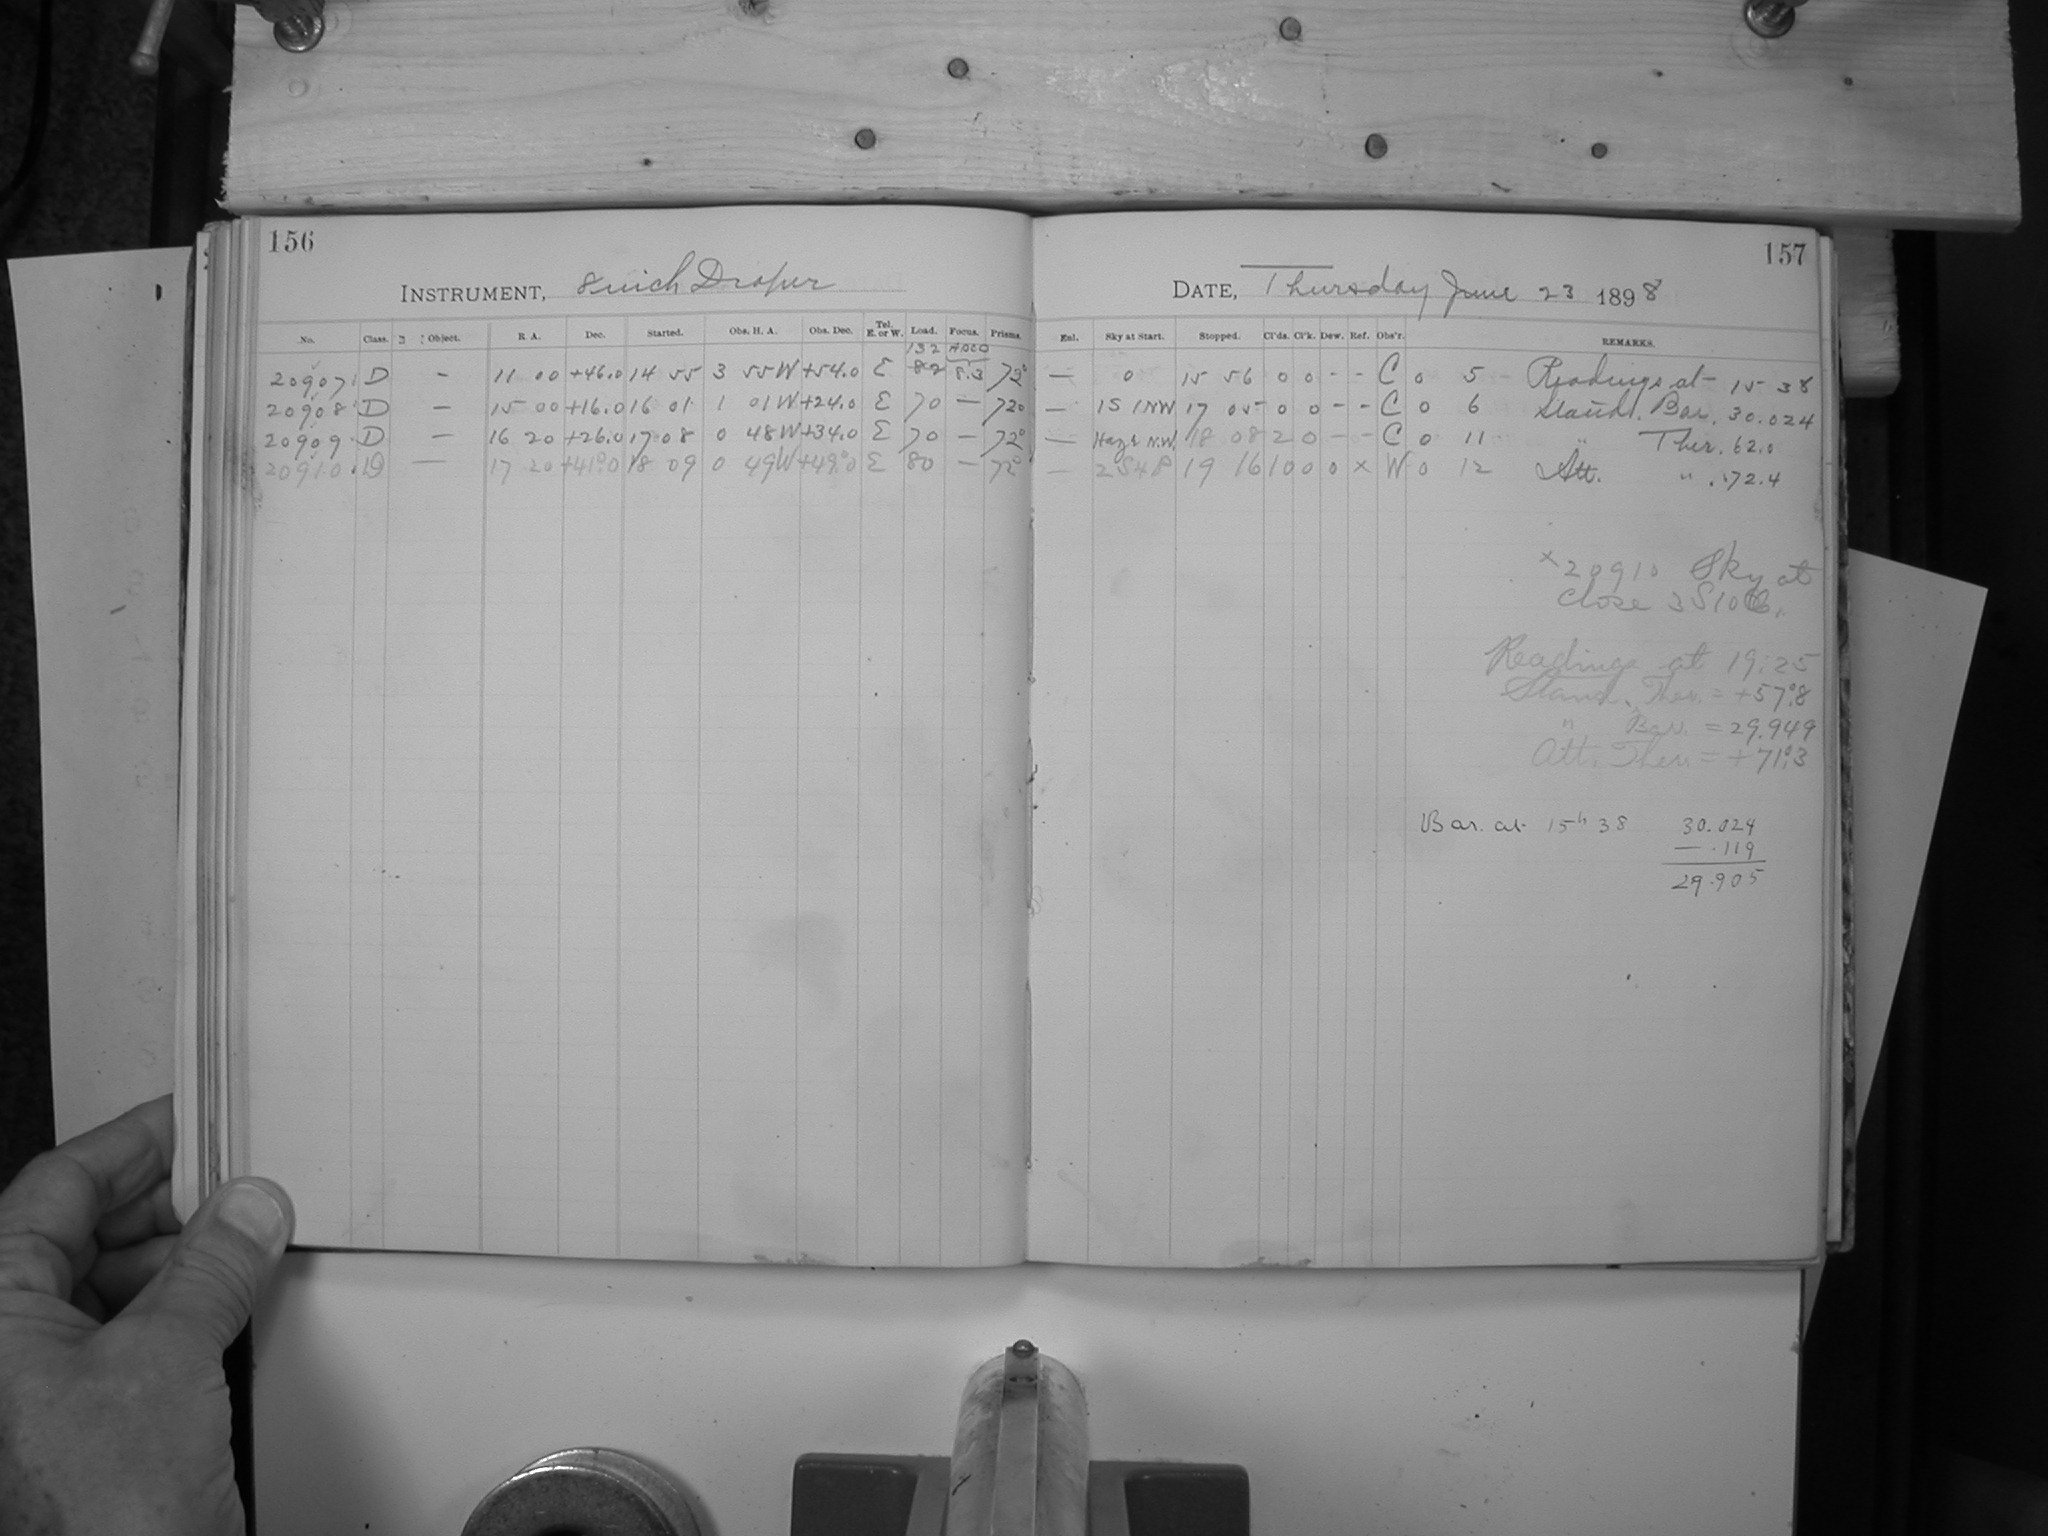 156
157
INSTRUMENT, 8 inch Draper
DATE, Thursday June 23 1898
No. Class. Object. R. A. Dec. Started. Obs. H. A. Obs. Dec. Tel. E. or W. Load. Focus. Prisms. Enl. Sky at Start. Stopped. Cl'ds. Cl'k. Dew. Ref. Obs'r. REMARKS.
132
20907 D - 11 00 +46.0 14 55 3 55 W +54.0 E 82 8.3 72° — 0 15 56 0 0 - - C 0 5 Readings at 15 38
20908 D — 15 00 +16.0 16 01 1 01 W +24.0 E 70 — 72° — 1S 1NW 17 05 0 0 - - C 0 6 Stand. Bar. 30.024
20909 D — 16 20 +26.0 17 08 0 48 W +34.0 E 70 — 72° — Haze N.W. 18 08 2 0 - - C 0 11 " Ther. 62.0
20910 D — 17 20 +41°.0 18 09 0 49 W +49°.0 E 80 — 72° — 19 16 10 0 0 x W 0 12 Att. " 72.4
x 20910 Sky at
close 3S10
Readings at 19:25
Stand. Ther. = +57°.8
" Bar. = 29.949
Att. Ther. = +71°.3
Bar. at 15h 38 30.024
— .119
29.905